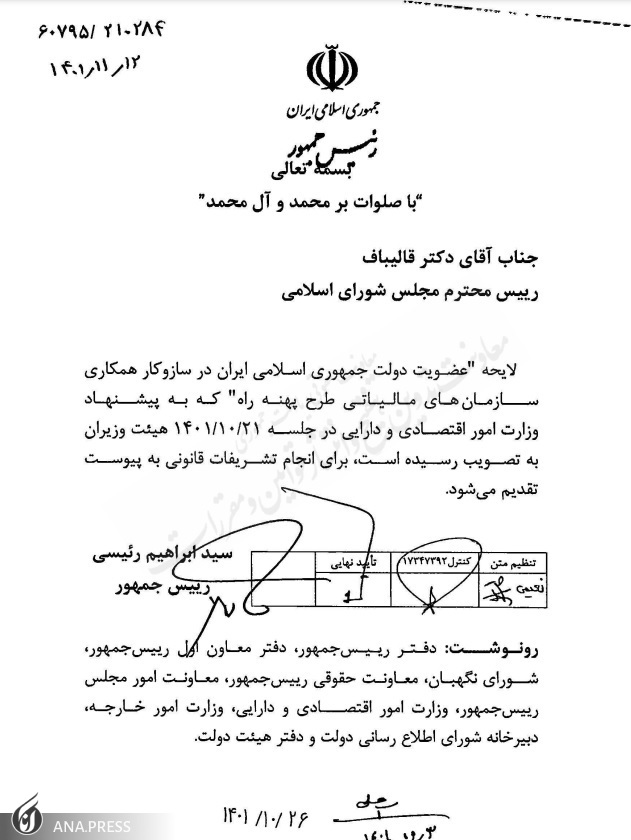 ۶۰۷۹۵/ ۲۱۰۲۸۴
۱۴۰۱/۱۱/۱۲
جمهوری اسلامی ایران
رئیس جمهور
بسمه تعالی
“با صلوات بر محمد و آل محمد”
جناب آقای دکتر قالیباف
رییس محترم مجلس شورای اسلامی
لایحه "عضویت دولت جمهوری اسلامی ایران در سازوکار همکاری
سازمان‌های مالیاتی طرح پهنه راه" که به پیشنهاد
وزارت امور اقتصادی و دارایی در جلسه ۱۴۰۱/۱۰/۲۱ هیئت وزیران
به تصویب رسیده است، برای انجام تشریفات قانونی به پیوست
تقدیم می‌شود.
سید ابراهیم رئیسی
رییس جمهور
تنظیم متن کنترل ۱۷۳۴۷۳۹۲ تأیید نهایی
رونوشت: دفتر رییس‌جمهور، دفتر معاون اول رییس‌جمهور،
شورای نگهبان، معاونت حقوقی رییس‌جمهور، معاونت امور مجلس
رییس‌جمهور، وزارت امور اقتصادی و دارایی، وزارت امور خارجه،
دبیرخانه شورای اطلاع رسانی دولت و دفتر هیئت دولت.
۱۴۰۱/۱۰/۲۶
ANA.PRESS